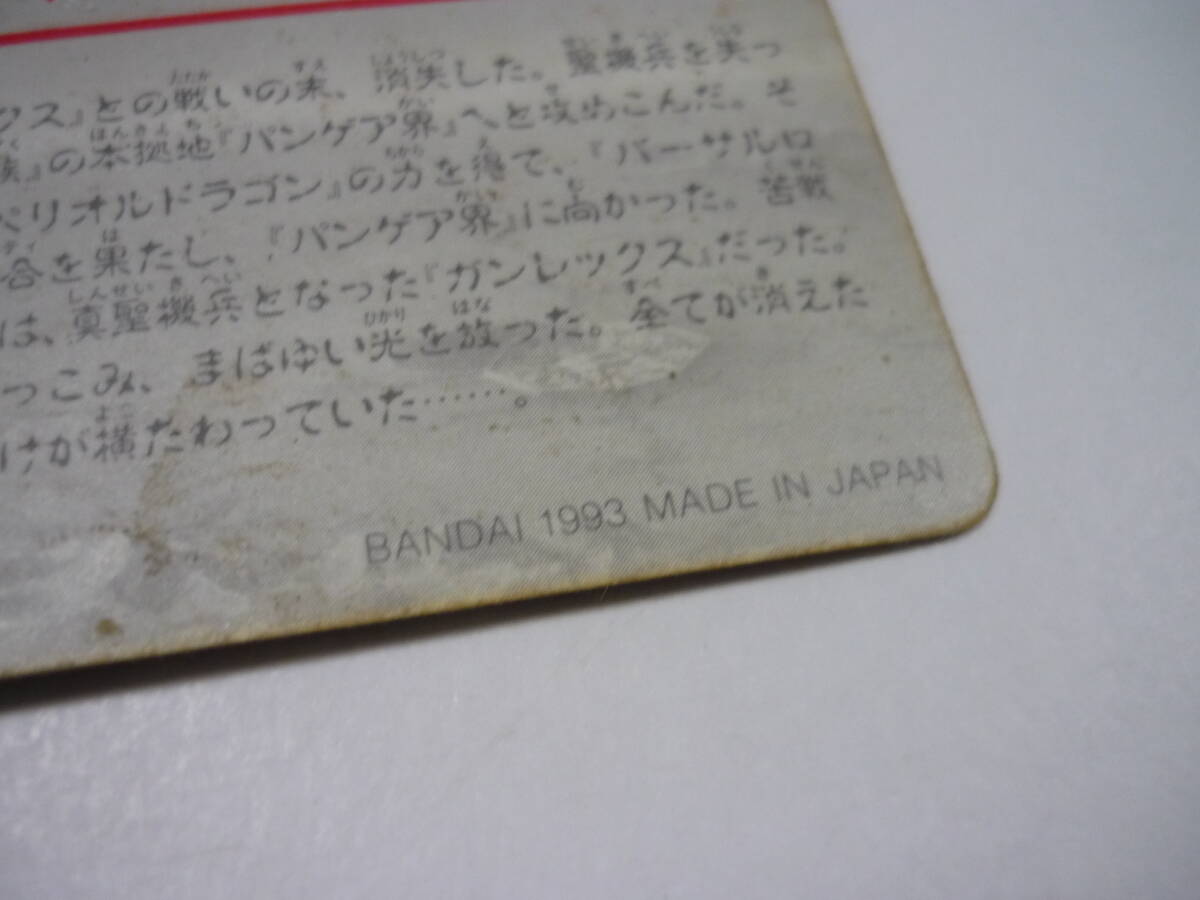 クス』との戦いの末、消失した。聖機兵を失っ
族』の本拠地『パンゲア界』へと攻めこんだ。そ
ペリオルドラゴン』の力を得て、『バーサルロ
合を果たし、『パンゲア界』に向かった。苦戦
は、真聖機兵となった『ガンレックス』だった。
っこみ、まばゆい光を放った。全てが消えた
けが横たわっていた……。
BANDAI 1993 MADE IN JAPAN